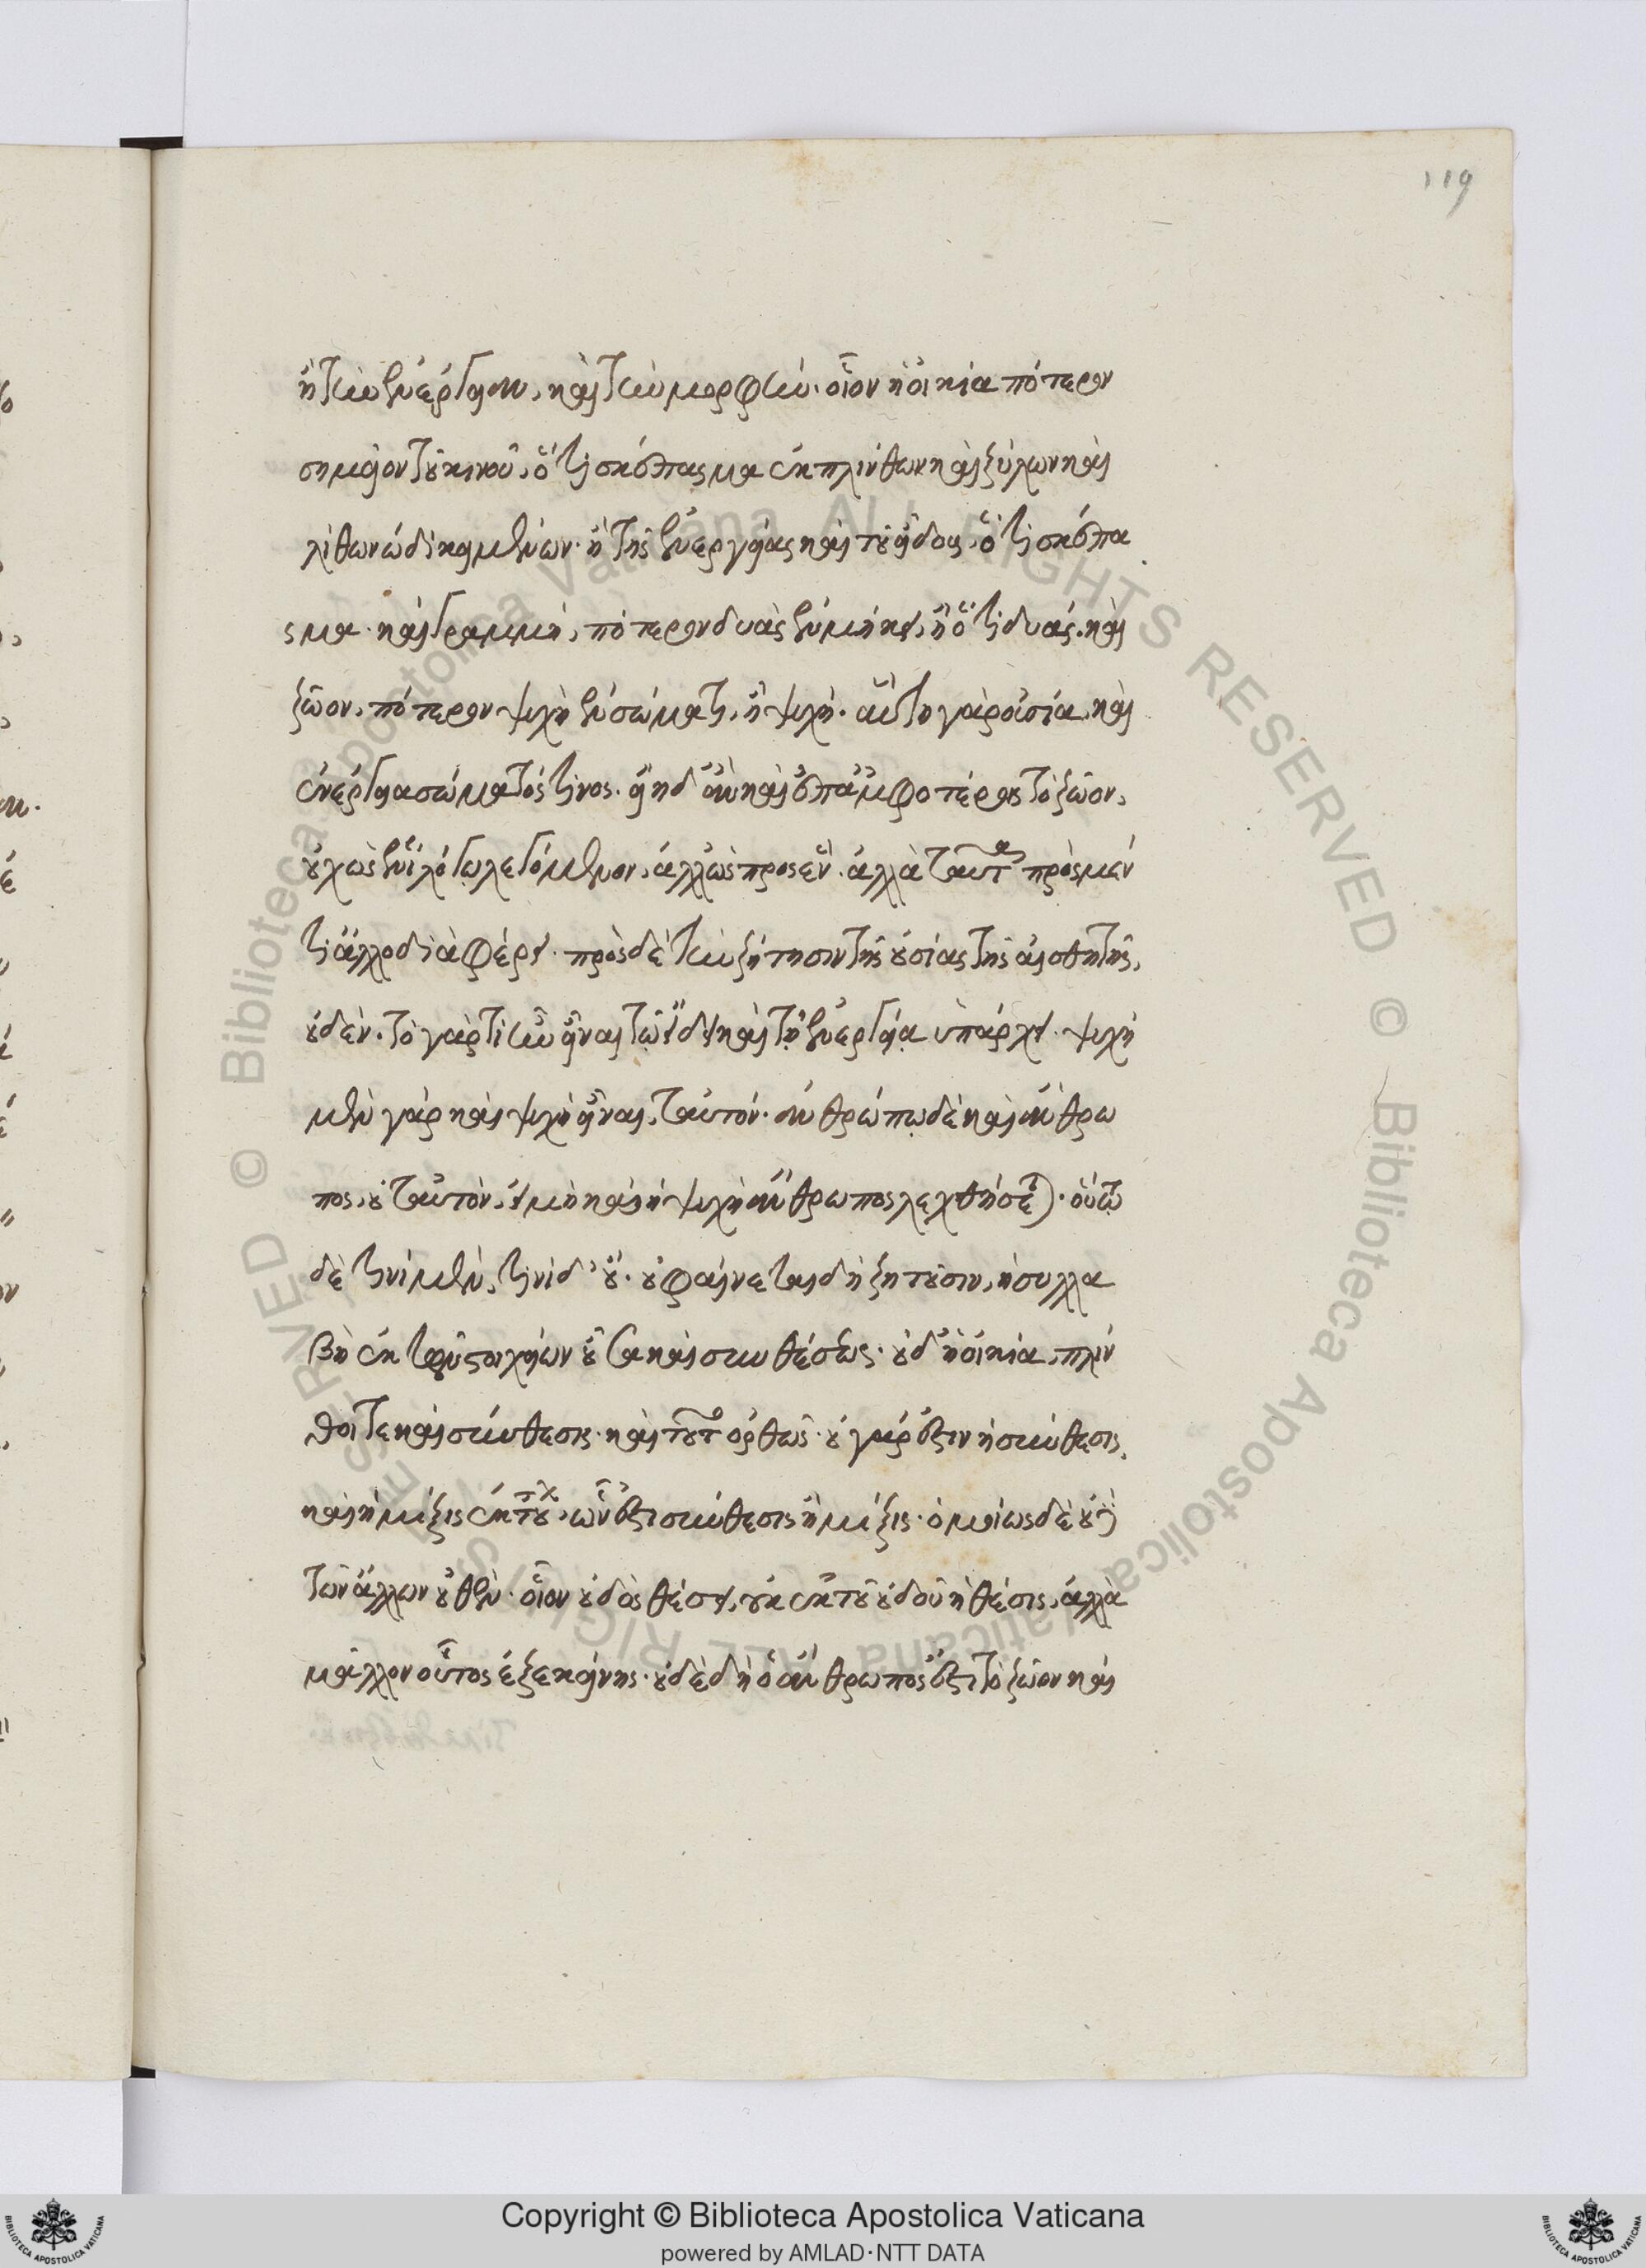 119
ἢ τὴν ἐνέργειαν, καὶ τὴν μορφήν. οἷον ἡ οἰκία πότερον
σημεῖον τοῦ κοινοῦ, ὅτι σκέπασμα ἐκ πλίνθων καὶ ξύλων καὶ
λίθων ὡδὶ κειμένων. ἢ τῆς ἐνεργείας καὶ τοῦ εἴδους, ὅτι σκέπα
σμα. καὶ γραμμή, πότερον δυὰς ἐν μήκει, ἢ ὅτι δυάς. καὶ
ζῶον, πότερον ψυχὴ ἐν σώματι, ἢ ψυχή. αὕτη γὰρ οὐσία, καὶ
ἐνέργεια σώματός τινος. εἴη δ' ἂν καὶ ἐπ' ἀμφοτέροις τὸ ζῶον,
οὐχ ὡς ἑνὶ λόγῳ λεγόμενον, ἀλλ' ὡς πρὸς ἕν. ἀλλὰ ταῦτα πρὸς μέν
τι ἄλλο διαφέρει. πρὸς δὲ τὴν ζήτησιν τῆς οὐσίας τῆς αἰσθητῆς,
οὐδέν. τὸ γὰρ τί ἦν εἶναι τῷ εἴδει καὶ τῇ ἐνεργείᾳ ὑπάρχει. ψυχὴ
μὲν γὰρ καὶ ψυχῇ εἶναι, ταυτόν. ἀνθρώπῳ δὲ καὶ ἄνθρω
πος, οὐ ταυτόν, εἰ μὴ καὶ ἡ ψυχὴ ἄνθρωπος λεχθήσεται. οὕτω
δὲ τινὶ μέν, τινὶ δ' οὔ. οὐ φαίνεται δὴ ζητοῦσιν, ἡ συλλα
βὴ ἐκ τῶν στοιχείων οὖσα καὶ συνθέσεως. οὐδ' ἡ οἰκία, πλίν
θοι τε καὶ σύνθεσις. καὶ τοῦτο ὀρθῶς. οὐ γάρ ἐστιν ἡ σύνθεσις,
καὶ ἡ μίξις ἐκ τούτων, ὧν ἐστι σύνθεσις ἢ μίξις. ὁμοίως δὲ οὐδὲ
τῶν ἄλλων οὐθέν. οἷον οὐδὸς θέσει, οὐκ ἐκ τοῦ οὐδοῦ ἡ θέσις, ἀλλὰ
μᾶλλον οὗτος ἐξ ἐκείνης. οὐδὲ δὴ ὁ ἄνθρωπός ἐστι τὸ ζῶον καὶ
Copyright © Biblioteca Apostolica Vaticana
powered by AMLAD·NTT DATA